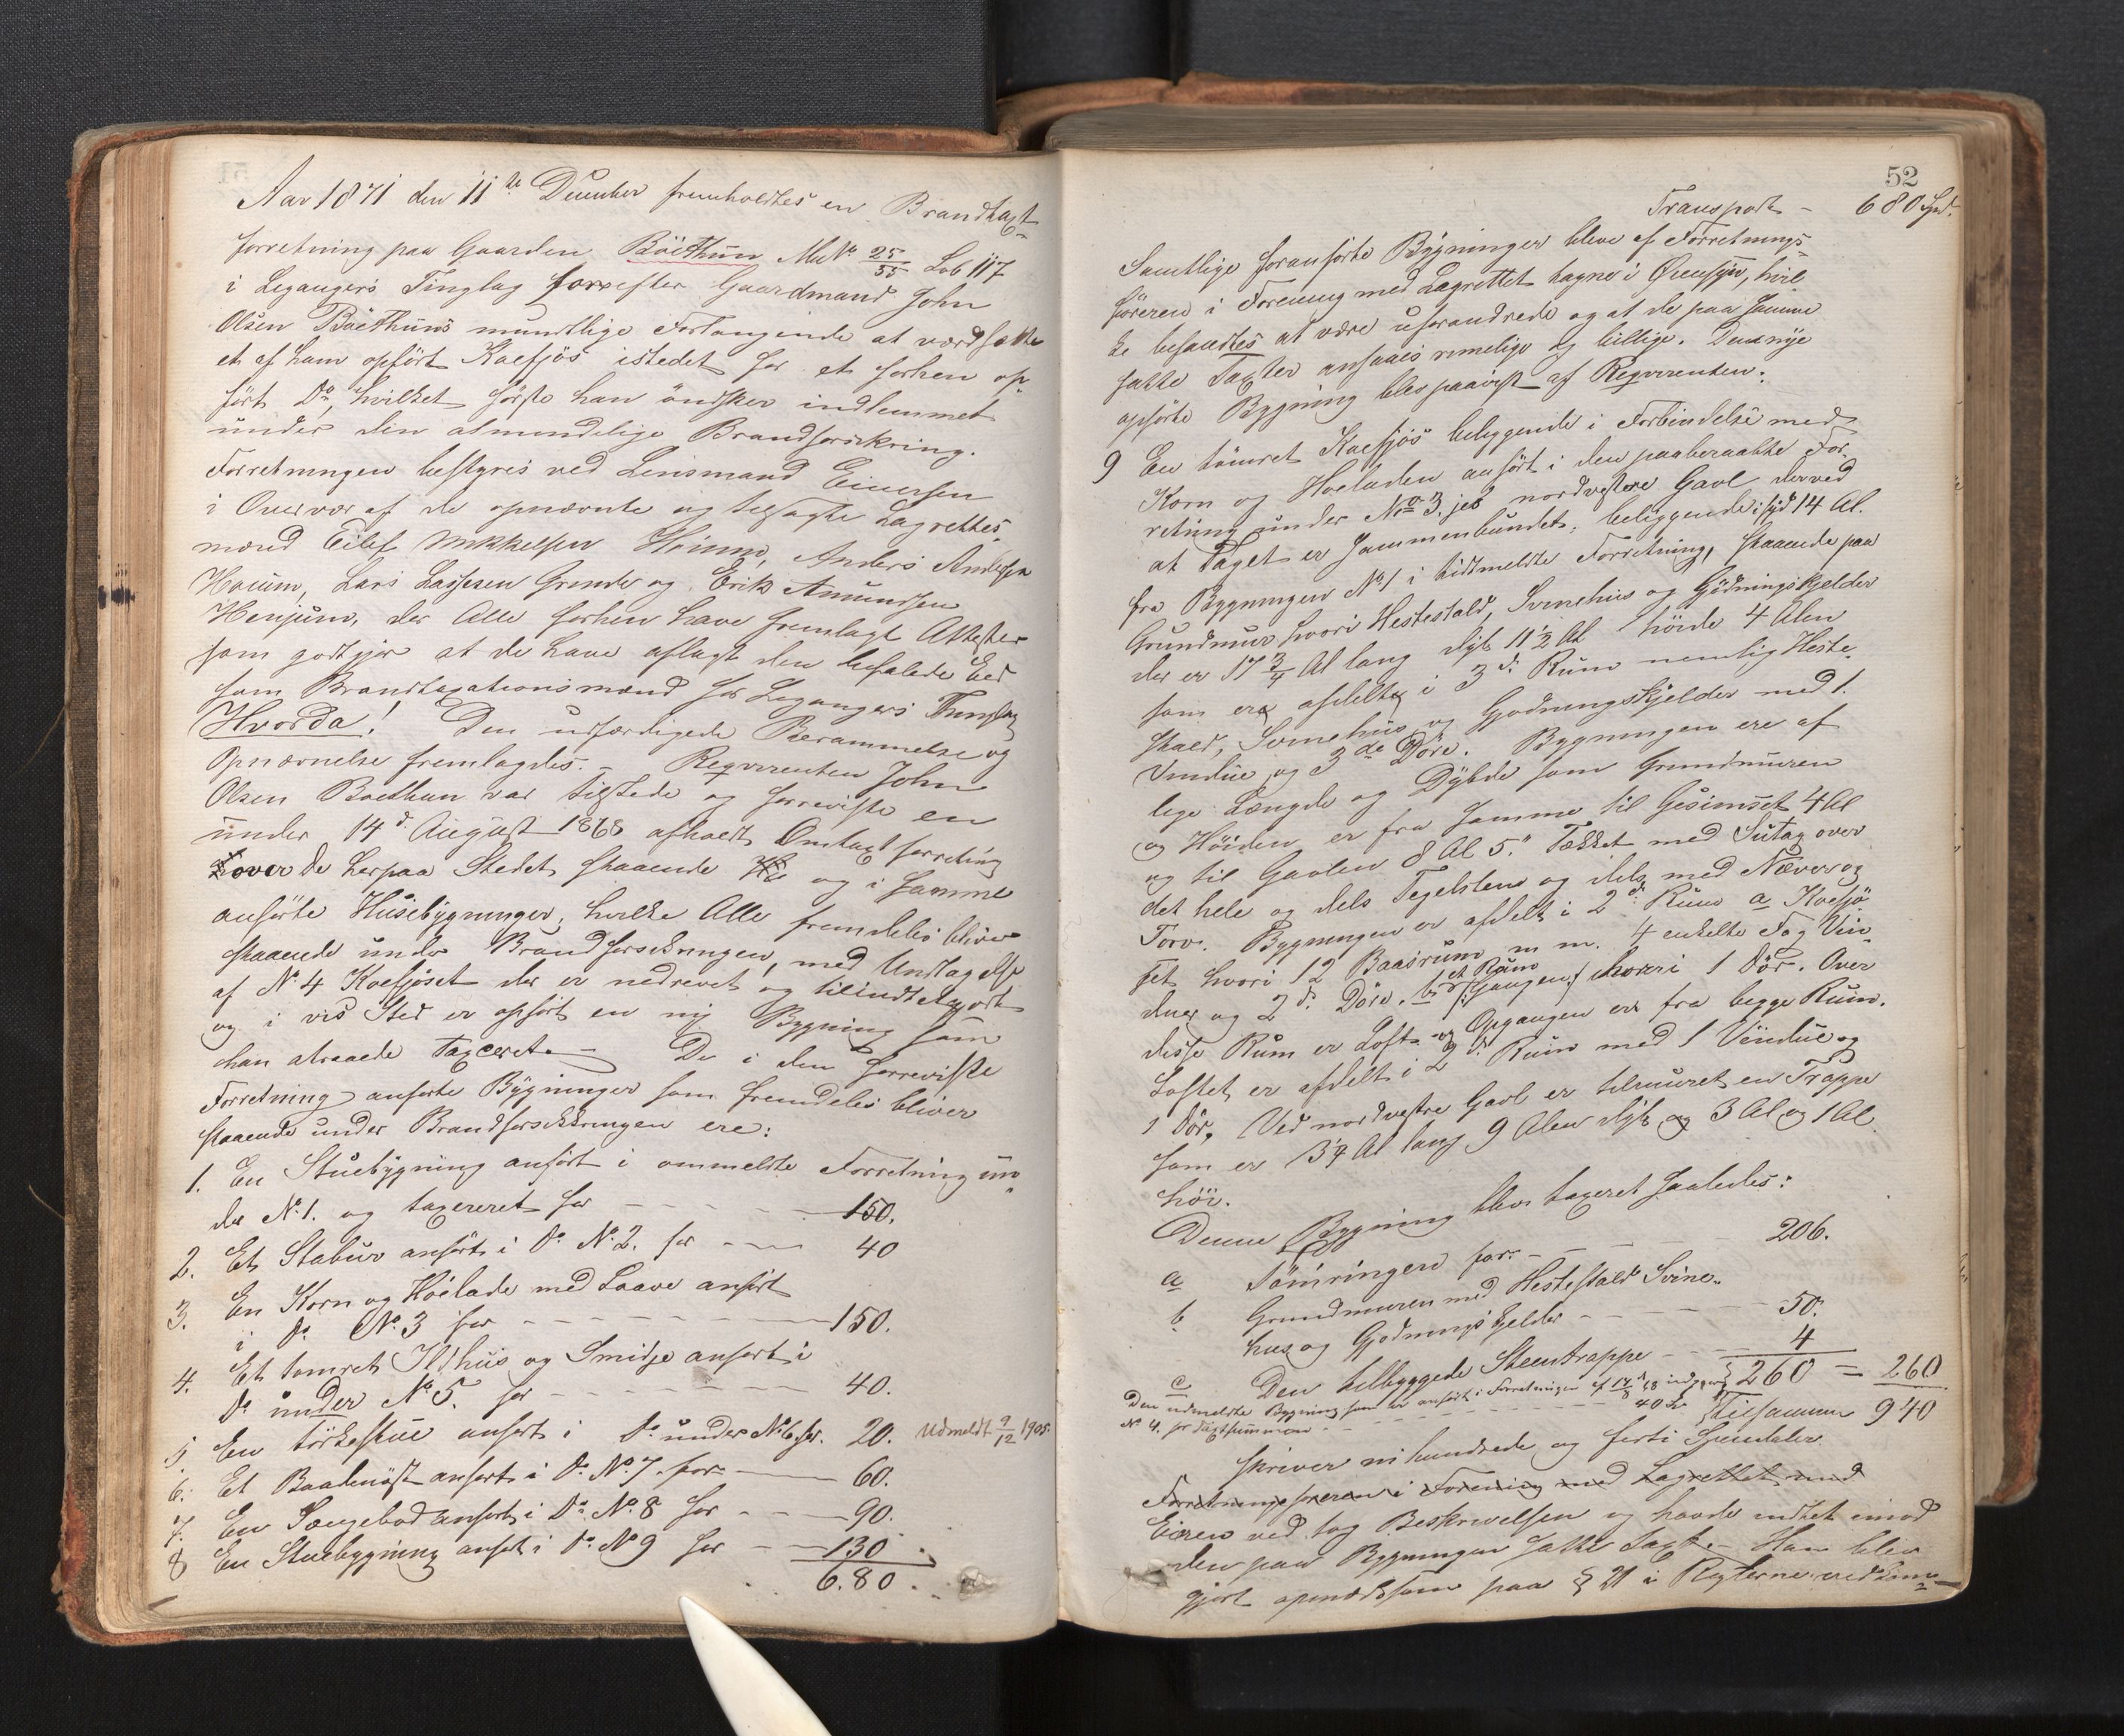 Aar 1871 den 11te December fremholdtes en Brandtaxt
forretning paa Gaarden Böithun MNo 25/55 Lob 117
i Legangers Tinglag efter Gaardmand John
Olsen Böethuns mundtlige Forlangende at værdsætte
et af ham opfört Koefjös istedet for et forhen op-
fört Do, hvilket förste han önsker indlemmet
under den almindelige Brandforsikring.
Forretningen bestyres ved Lensmand Einersen
i Overvær af de opnævnte og tilsagte Lagrettes-
mænd Eilef Mikkelsen Anders Andersen
Husum, Lars Larssen Grinde og Erik Amundsen
Henjum, der Alle forhen have fremlagt Attester
som godtgjör at de have aflagt den befalede Eed
som Brandtaxationsmænd for Legangers Tinglag
Hvorda! Den udfærdigede Berammelse og
Opnævnelse fremlagdes. - Reqvirenten John
Olsen Boethun var tilstede og foreviste en
under 14d August 1868 afholdt Omtaxtforretning
over de herpaa Stedet staaende og i samme
anförte Husebygninger, hvilke Alle fremdeles bliver
staaende under Brandforsikringen, med Undtagelse
af No 4 Koefjöset der er nedrevet og tilintetgjort
og i vis Sted er opfört en ny Bygning som
han atraaede taxeret. - De i den foreviste
Forretning anförte Bygninger som fremdeles bliver
staaende under Brandforsikkringen ere:
1. En Stuebygning anfört i ommeldte Forretning un-
der No 1. og taxereret for - - - 150.
2. Et Stabur anfört i Do No 2. for - - 40
3. En Korn og Höelade med Laave anfört
i Do No 3 for - - - 150.
4. Et tömret Ildhus og Smidje anfört i
Do under No 5. for - - - 40.
5 En törkestue anfört i Do under No 6 for. 20. Udmeldt 9/12 1905.
6. Et Baadenöst anfört i Do No 7. for - 60.
7. En Sængebod anfört i Do No 8 for - - 90.
8 En Stuebygning anfört i Do No 9 for - - 130.
6.80.
52
Transport - 680 Spd.
Samtlige foranförte Bygninger bleve af Forretnings-
föreren i Forening med Lagrettet tagne i Öiensyn, hvil-
ke befandtes at være uforandrede og at de paa samme
satte Taxter ansaaes rimelige og billige. Den nye
opförte Bygning blev paavist af Reqvirenten:
9 En tömret Koefjös beliggende i Forbindelse med
Korn og Hoeladen anfört i den paaberaabte For-
retning under No 3. jes nordvestere Gavl derved
at Taget er sammenbundet: beliggende i syd 14 Al.
fra Bygningen No 1 i tidtmeldte Forretning, staaende paa
Grundmur hvori Hestestald, Svinehus og Gödningskjelder
der er 17 3/4 Al lang dyb 11 1/2 Al höide 4 Alen
som ere afdelte i 3 de Rum nemlig Heste-
stald, Svinehus og Gjödningskjelder med 1.
Vindue og 3 de Döre. Bygningen ere af
lige Længde og Dybde som Grundmuren
og Höiden er fra samme til Gesimset 4 Al
og til Gavlen 8 Al 5." Tækket med Sutag over
det hele og dels Tegelsten og dels med Næver og
Torv. Bygningen er afdelt i 2 d: Rum a Koefjö-
set hvori 12 Baasrum m m. 4 enkelte Fag Vin-
duer og 2 d: Döre. b et Rum (Gangen) hvori 1 Dör. Over
disse Rum er Loft og Opgangen er fra begge Rum.
Loftet er afdelt i 2 d: Rum med 1 Vindue og
1 Dör, Ved nordvestre Gavl er tilmuret en Trappe
som er 3 3/4 Al lang 9 Alen dyb og 3 Al og 1 Al
höi.
Denne Bygning blev taxeret saaledes:
a Tömringen for - - - 206.
b Grundmuren med Hestestald Svine-
hus og Gjödningskjelder - - - 50.
c Den tilbyggede Steentrappe - - - 4
260 = 260
Den udmeldte Bygning som er anfört i Forretningen af 14/8 68 indgaar
No 4. for Taxtsummen - - - 40 Tilsammen 940
skriver ni hundrede og forti Speciedaler.
Forretningsföreren i Forening med Lagrettet med
Eieren ved tog Beskrivelsen og havde indtet imod
den paa Bygningen satte Taxt. - Han blev
gjort opmærksom paa § 21 i Reglerne